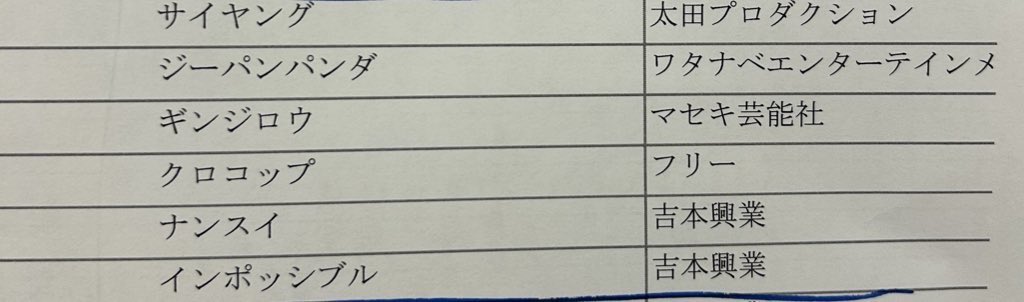 サイヤング 太田プロダクション
ジーパンパンダ ワタナベエンターテインメ
ギンジロウ マセキ芸能社
クロコップ フリー
ナンスイ 吉本興業
インポッシブル 吉本興業